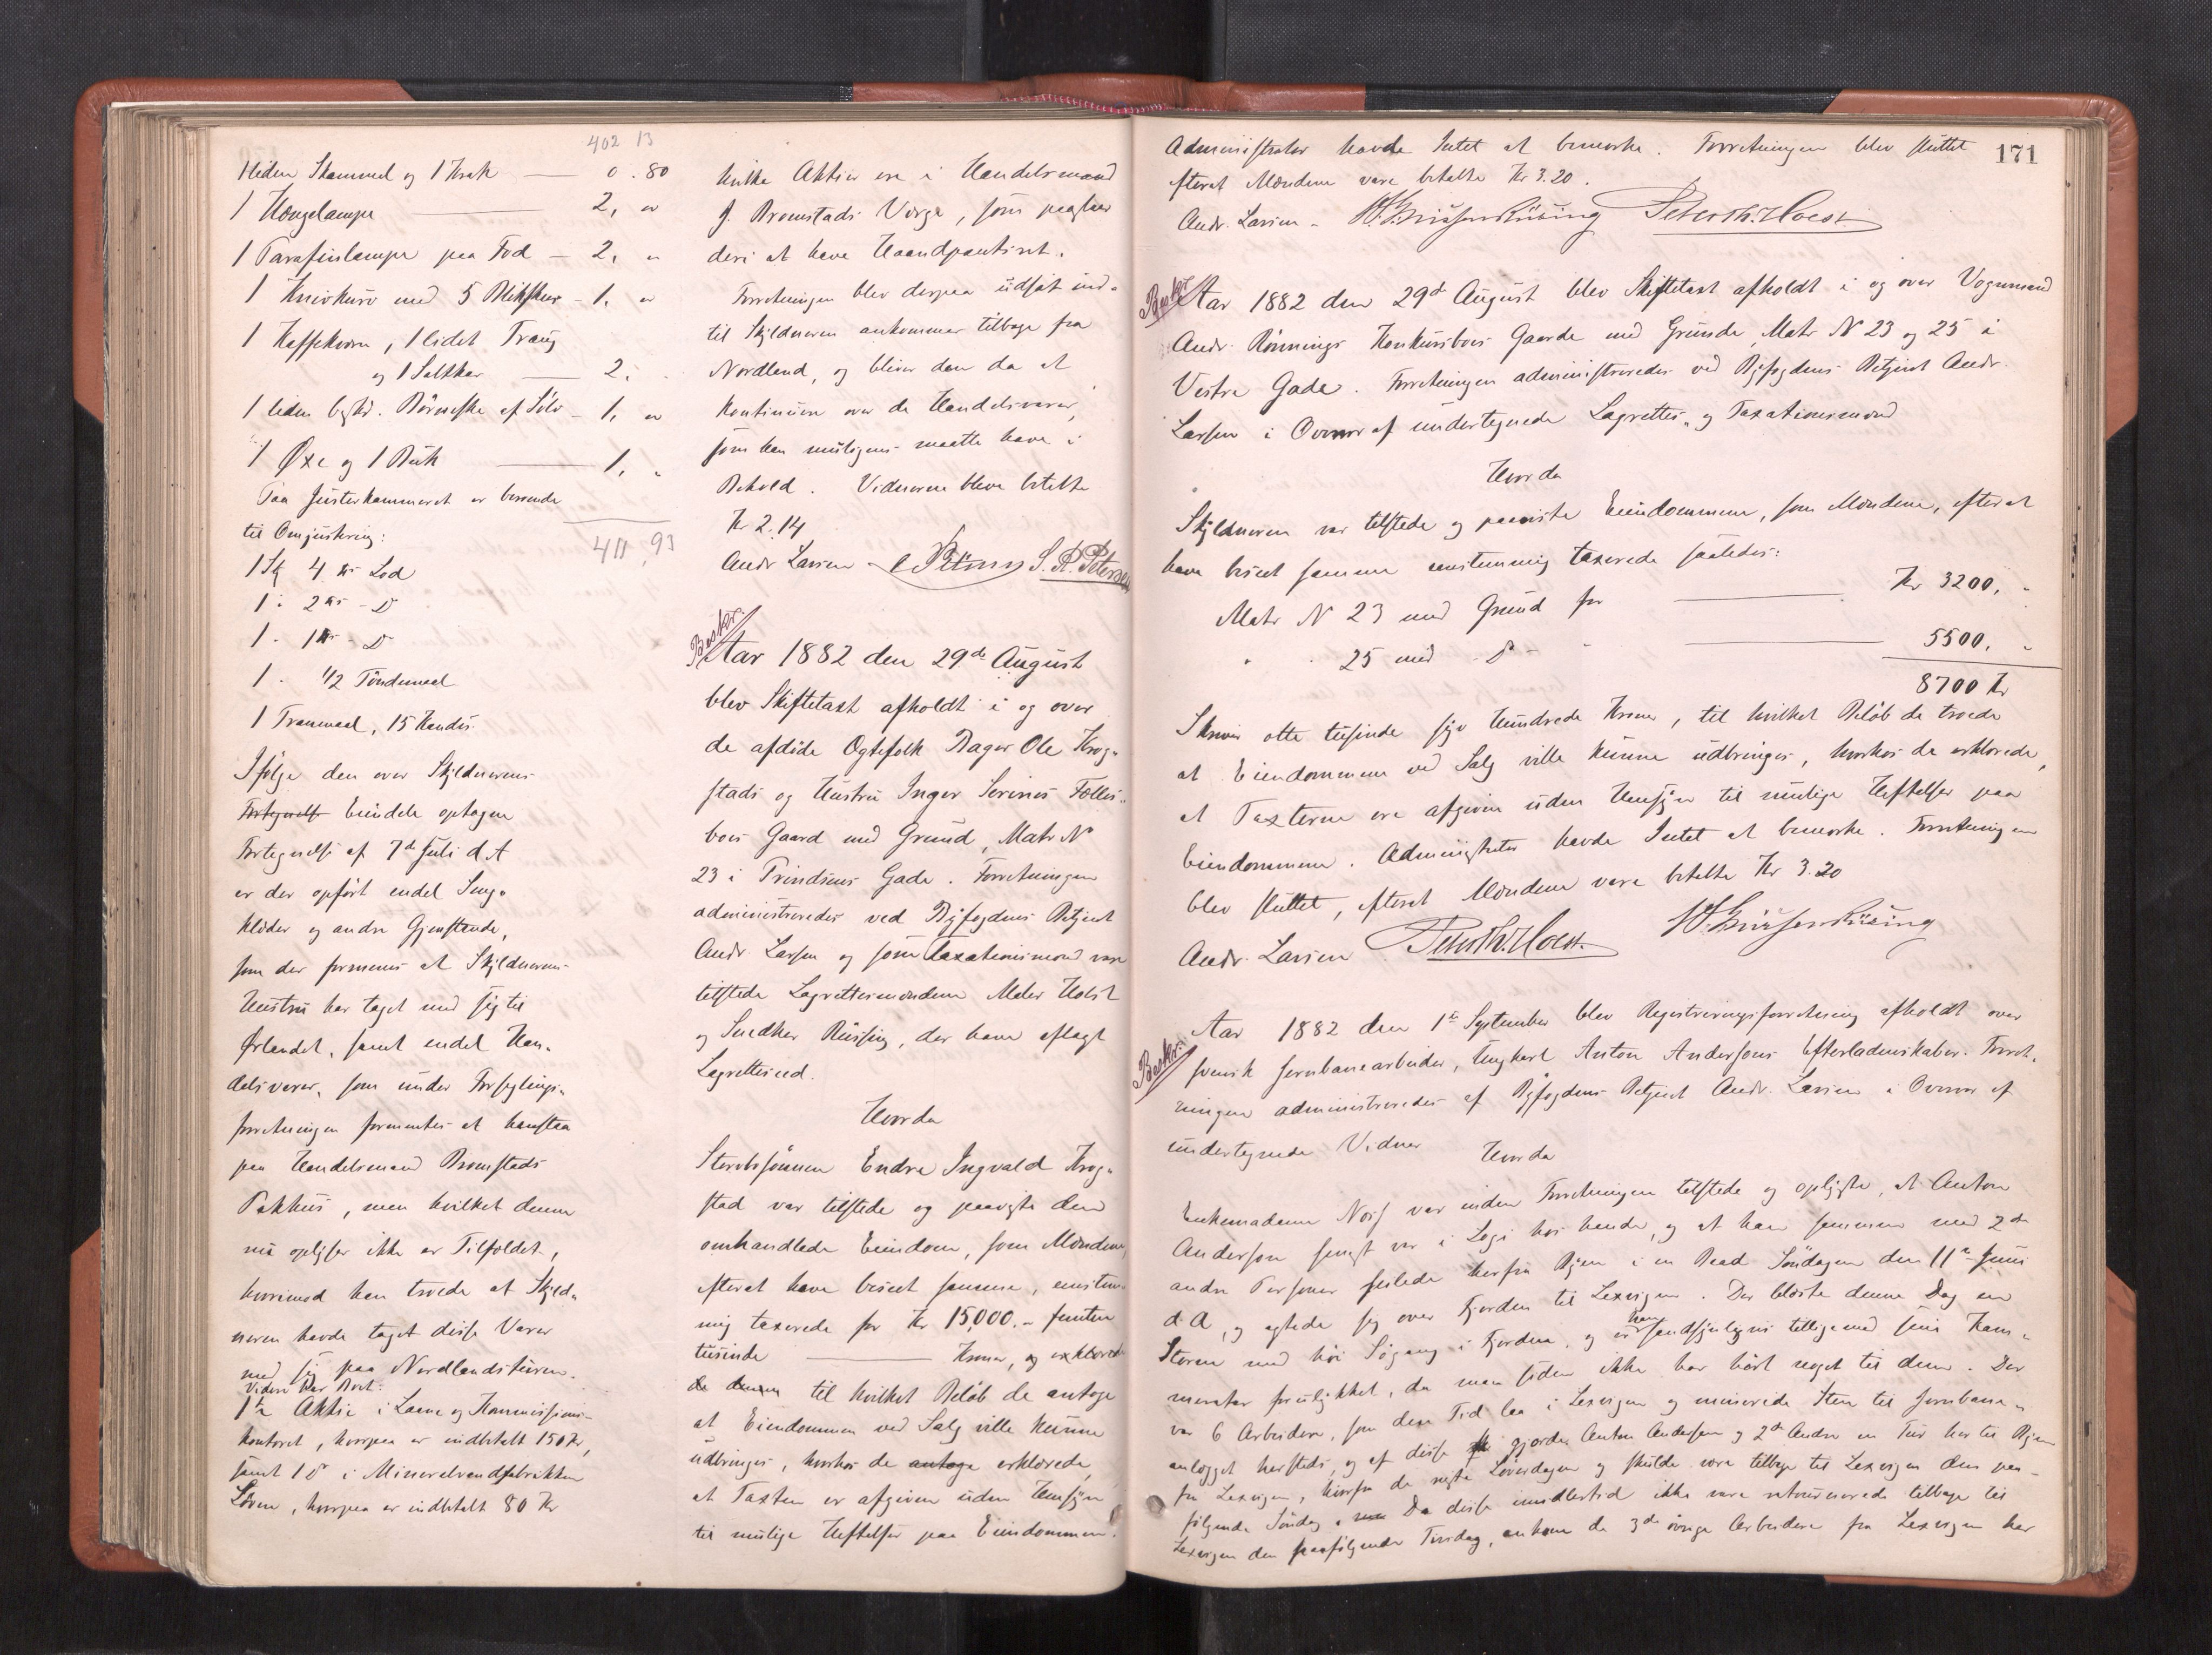 402 13
1 liden Skammel og 1 Krak — 0.80
1 Hængelampe — 2, "
1 Parafinlampe paa Fod — 2, "
1 Knivkurv med 5 — 1, "
1 Kaffekværn, 1 lidet Traug
og 1 Saltkar — 2,
1 liden Börneske af Sölv — 1, "
1 Øxe og 1 Buk — 1, "
Paa Justerkammeret er beroende
til Omjustering:
411,93
1 Stk 4 Lod
1 - 2 - Do
1 - 1 - Do
1 - 1/2 Töndemaal
1 Tranmaal, 15 Kander
Ifölge den over Skyldnerens
Fortegnelse Eiendele optagne
Fortegnelse af 7de Juli d.A
er der opfört endel Seng-
klæder og andre Gjenstande,
som der formenes at Skyldnerens
Hustru har taget med sig til
Ørlandet, samt endel Han-
delsvarer, som under Forseglings-
forretningen formentes at henstaa
paa Handelsmand Bromstads
Pakhus, men hvilket denne
nu oplyser ikke er Tilfældet,
hvorimod han troede at Skyld-
neren havde taget disse Varer
med sig paa Nordlandsturen.
Videre har Boet:
1 Aktie i Laane og Kommissions-
kontoret, hvorpaa er indbetalt 150 Kr,
samt 1 do i Mineralvandfabrikken
Löven, hvorpaa er indbetalt 80 Kr
hvilke Aktier ere i Handelsmand
J. Bromstads Værge, som paastaar
deri at have Haandpantsret.
Forretningen blev derpaa udsat ind-
til Skyldneren ankommer tilbage fra
Nordland, og bliver den da at
kontinuere over de Handelsvarer,
som han muligens maatte have i
Behold. Vidnerne bleve betalte
Kr 2.14
Andr Larsen S. R. Petersen
Beskr.
Aar 1882 den 29de August
blev Skiftetaxt afholdt i og over
de afdöde Ægtefolk Bager Ole Krog-
stads og Hustru Inger Serines Fælles-
boes Gaard med Grund, Matr No
23 i Prindsens Gade. Forretningen
administreredes ved Byfogdens Betjent
Andr. Larsen og som Taxationsmænd vare
tilstede Lagrettesmændene Maler Holst
og Snedker Rüssing, der have aflagt
Lagretteseed.
Hvorda
Sterbosönnen Endre Ingvald Krog-
stad var tilstede og paaviste den
omhandlede Eiendom, som Mændene,
efterat have beseet samme, enstem-
mig taxerede for Kr 15,000.- femten
tusinde — Kroner, og erklærede
de denne til hvilket Belöb de antoge
at Eiendommen ved Salg ville kunne
udbringes, hvorhos de antoge erklærede,
at Taxten er afgiven uden Hensyn
til mulige Heftelser paa Eiendommen.
171
Administrator havde Intet at bemærke. Forretningen blev sluttet
efterat Mændene vare betalte Kr 3.20.
Andr. Larsen - Peter Th. Holst
Beskr
Aar 1882 den 29de August blev Skiftetaxt afholdt i og over Vognmand
Andr. Rönnings Konkursboes Gaarde med Grunde, Matr No 23 og 25 i
Vestre Gade. Forretningen administreredes ved Byfogdens Betjent Andr.
Larsen i Overvær af undertegnede Lagrettes- og Taxationsmænd
Hvorda
Skyldneren var tilstede og paaviste Eiendommene, som Mændene, efterat
have beseet samme enstemmig taxerede saaledes:
Matr No 23 med Grund for — Kr 3200, "
" " 25 med do " — 5500, "
8700 Kr
Skriver otte tusinde syv hundrede Kroner, til hvilket Belöb de troede
at Eiendommene ved Salg ville kunne udbringes, hvorhos de erklærede,
at Taxterne ere afgivne uden Hensyn til mulige Heftelser paa
Eiendommene. Administrator havde Intet at bemærke. Forretningen
blev sluttet, efterat Mændene vare betalte Kr 3.20
Andr. Larsen Peter Th. Holst
Beskr.
Aar 1882 den 1ste September blev Registreringsforretning afholdt over
svensk Jernbanearbeider, Ungkarl Anton Andersons Efterladenskaber. Forret-
ningen administreredes af Byfogdens Betjent Andr. Larsen i Overvær af
undertegnede Vidner
Hvorda
Enkemadame var under Forretningen tilstede og oplyste, at Anton
Anderson sengst var i Logi hos hende, og at han sammen med 2de
andre Personer seilede herfra Byen i en Baad Söndagen den 11te Juni
d.A, og agtede sig over Fjorden til Lexvigen. Der blæste denne Dag en
Storm med höi Sögang i Fjorden, og er han sandsynligvis tilligemed sine Kam-
merater forulykket, da man siden ikke har hört noget til dem. Der
var 6 Arbeidere, som den Tid laa i Lexvigen og minerede Sten til Jernbane-
anlægget hersteds, og af disse gjorde Anton Anderson og 2de Andre en Tur her til Byen
fra Lexvigen, hvorfra de reiste Löverdagen og skulde være tilbage til Lexvigen den paa-
fölgende Söndag. Da disse imidlertid ikke vare returnerede tilbage til
Lexvigen den paafölgende Tirsdag, ankom de 3de övrige Arbeidere fra Lexvigen her